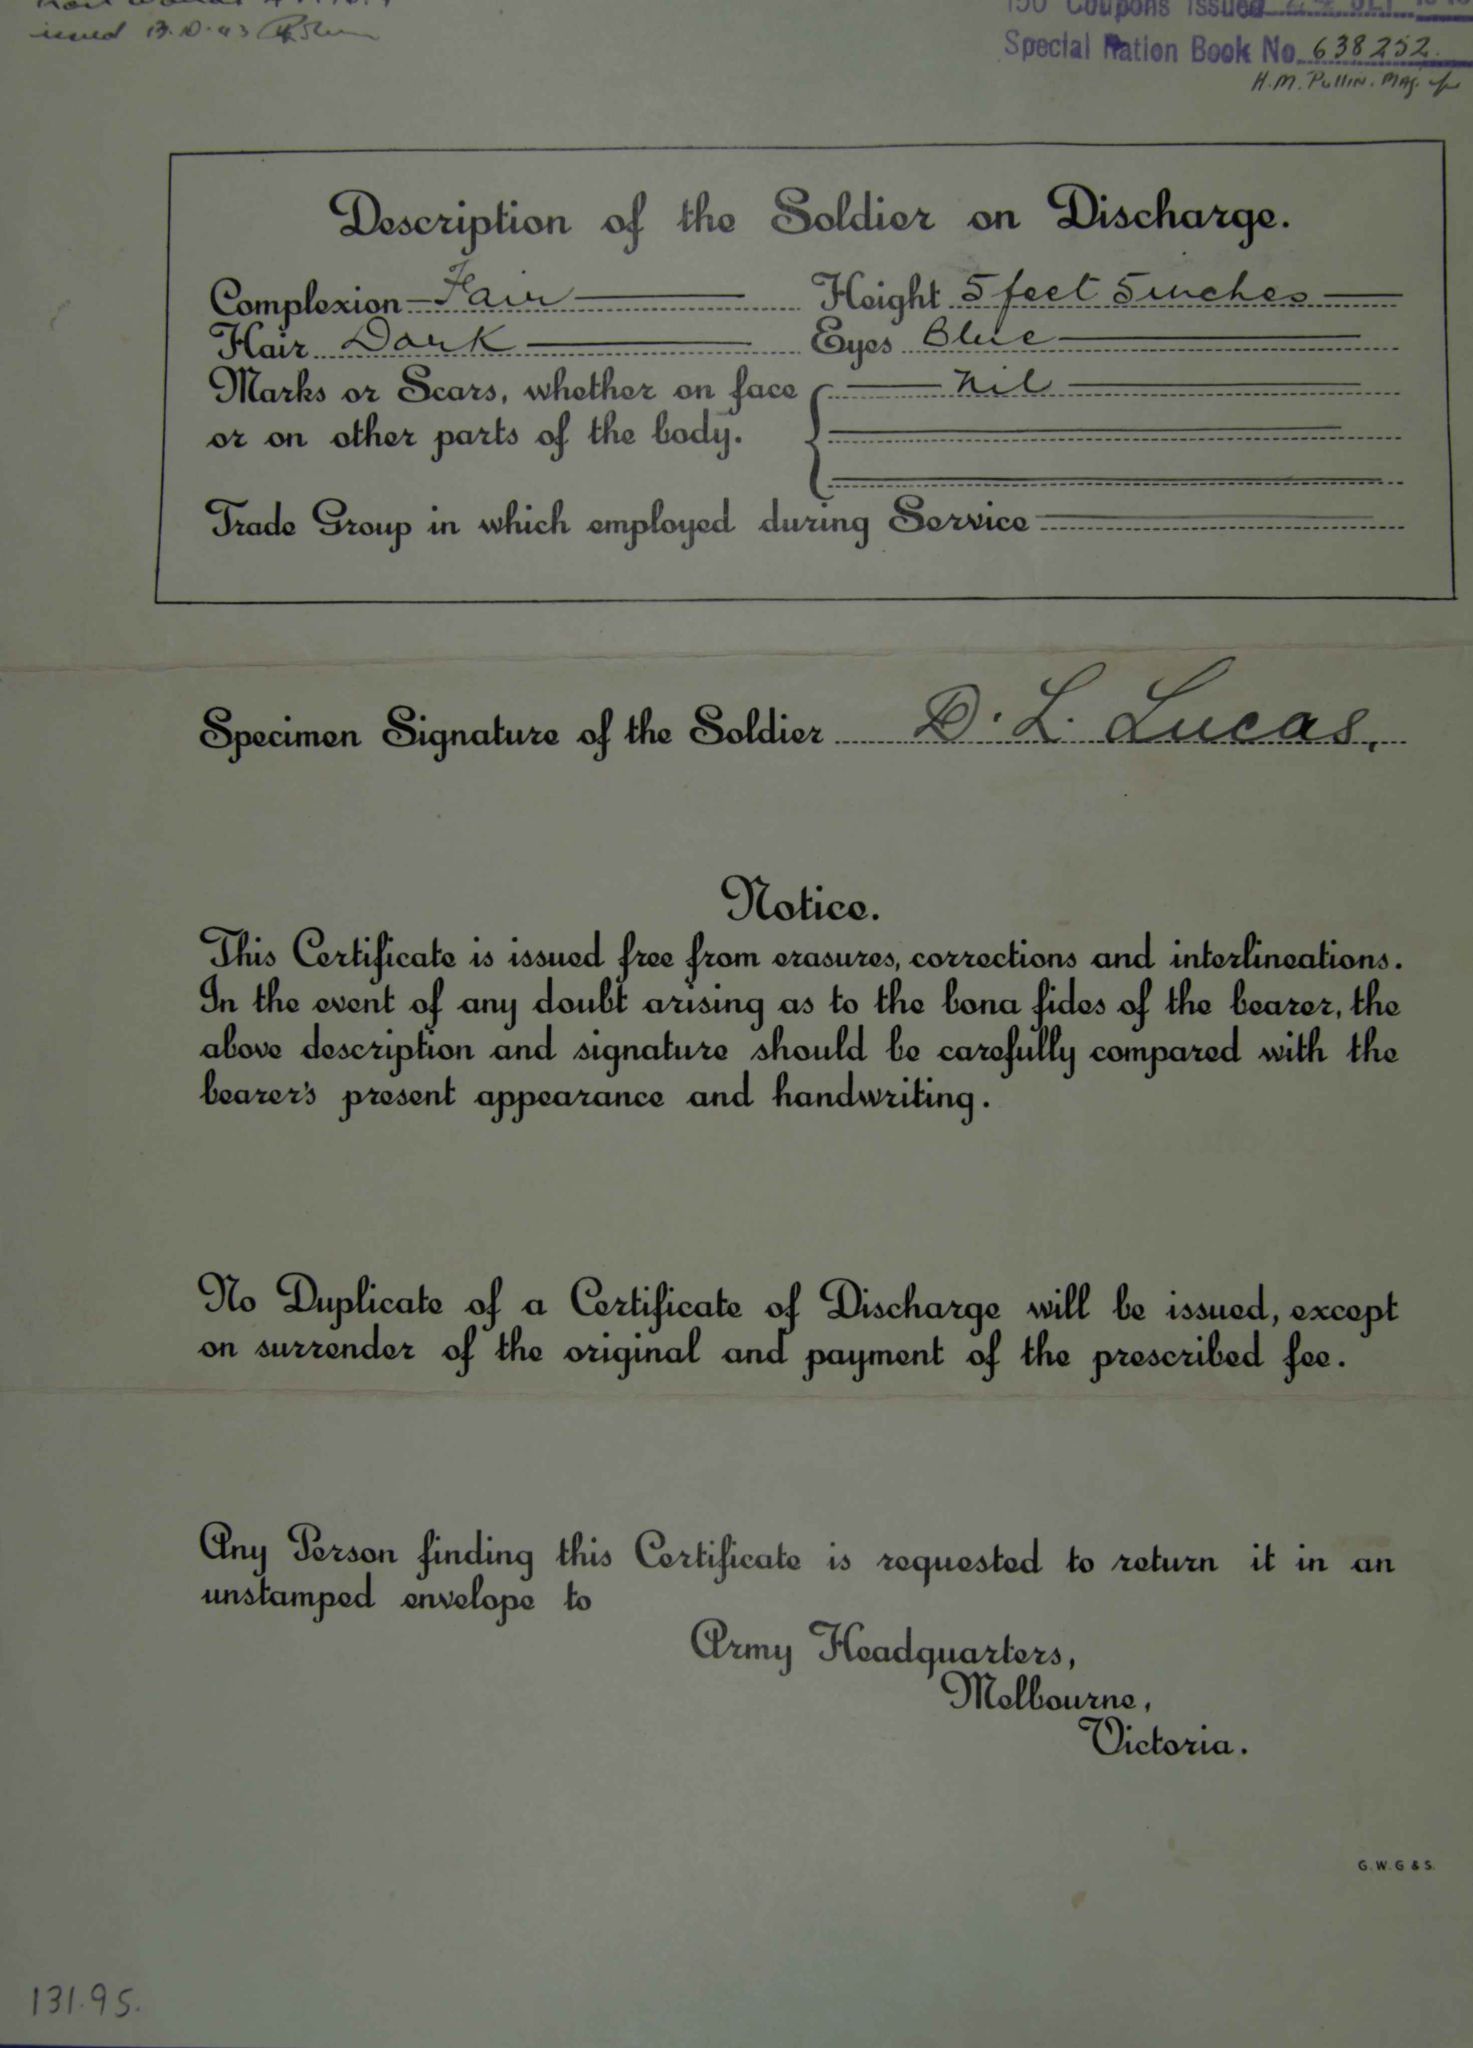 issued 13.10.43
150 Coupons Issued
Special Ration Book No. 638252.
H. M. Pullin. Maj.
Description of the Soldier on Discharge.
Complexion Fair Height 5 feet 5 inches
Hair Dark Eyes Blue
Marks or Scars, whether on face Nil
or on other parts of the body.
Trade Group in which employed during Service
Specimen Signature of the Soldier D. L. Lucas.
Notice.
This Certificate is issued free from erasures, corrections and interlineations.
In the event of any doubt arising as to the bona fides of the bearer, the
above description and signature should be carefully compared with the
bearer's present appearance and handwriting.
No Duplicate of a Certificate of Discharge will be issued, except
on surrender of the original and payment of the prescribed fee.
Any Person finding this Certificate is requested to return it in an
unstamped envelope to
Army Headquarters,
Melbourne,
Victoria.
G. W. G & S.
131.95.